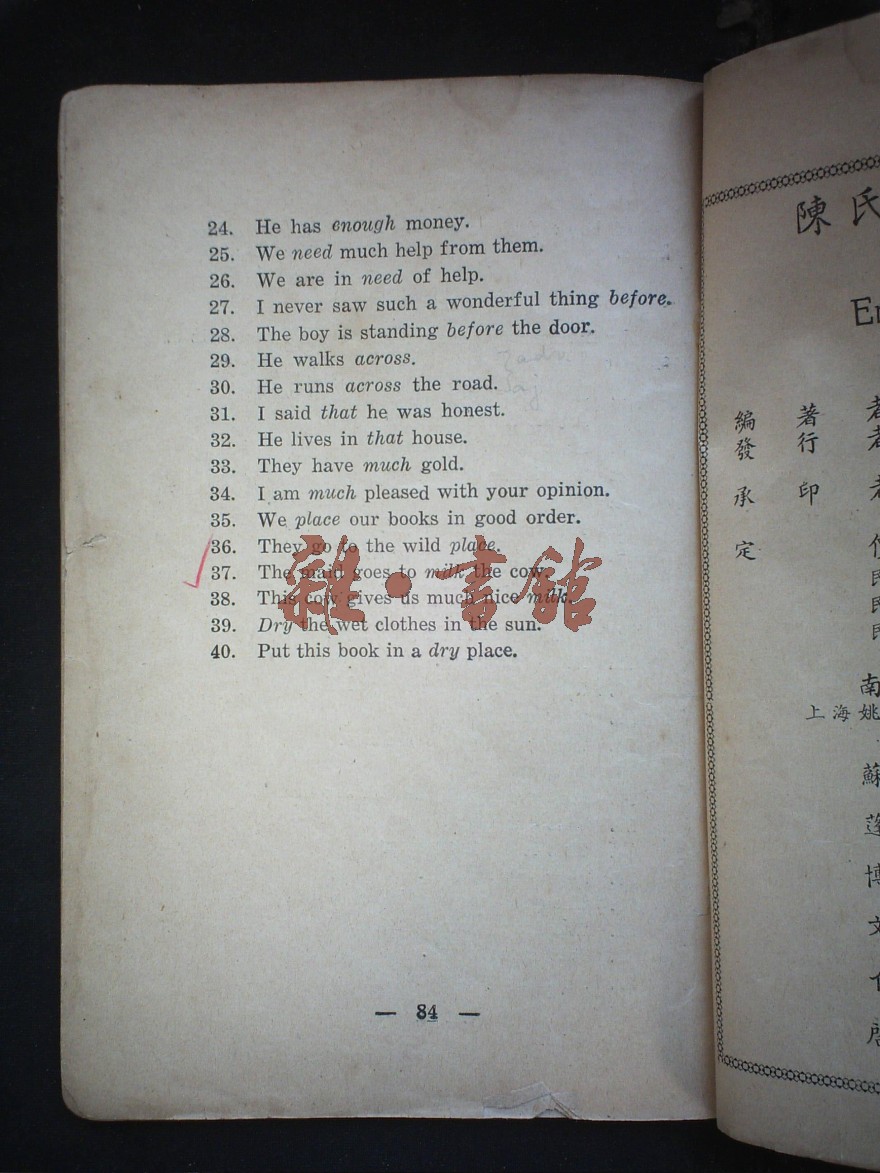 24. He has enough money.
25. We need much help from them.
26. We are in need of help.
27. I never saw such a wonderful thing before.
28. The boy is standing before the door.
29. He walks across.
30. He runs across the road.
31. I said that he was honest.
32. He lives in that house.
33. They have much gold.
34. I am much pleased with your opinion.
35. We place our books in good order.
36. They go to the wild place.
37. The maid goes to milk the cow.
38. This cow gives us much nice milk.
39. Dry the wet clothes in the sun.
40. Put this book in a dry place.
雜·書館
— 84 —
陳氏
En
編著者
發行者
承印
定
南
上海姚
蘇
蓬
博
文